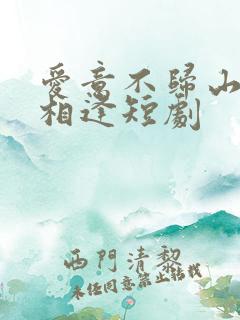 愛意不歸山
相逢短劇
西門清黎
未经同意禁止转载